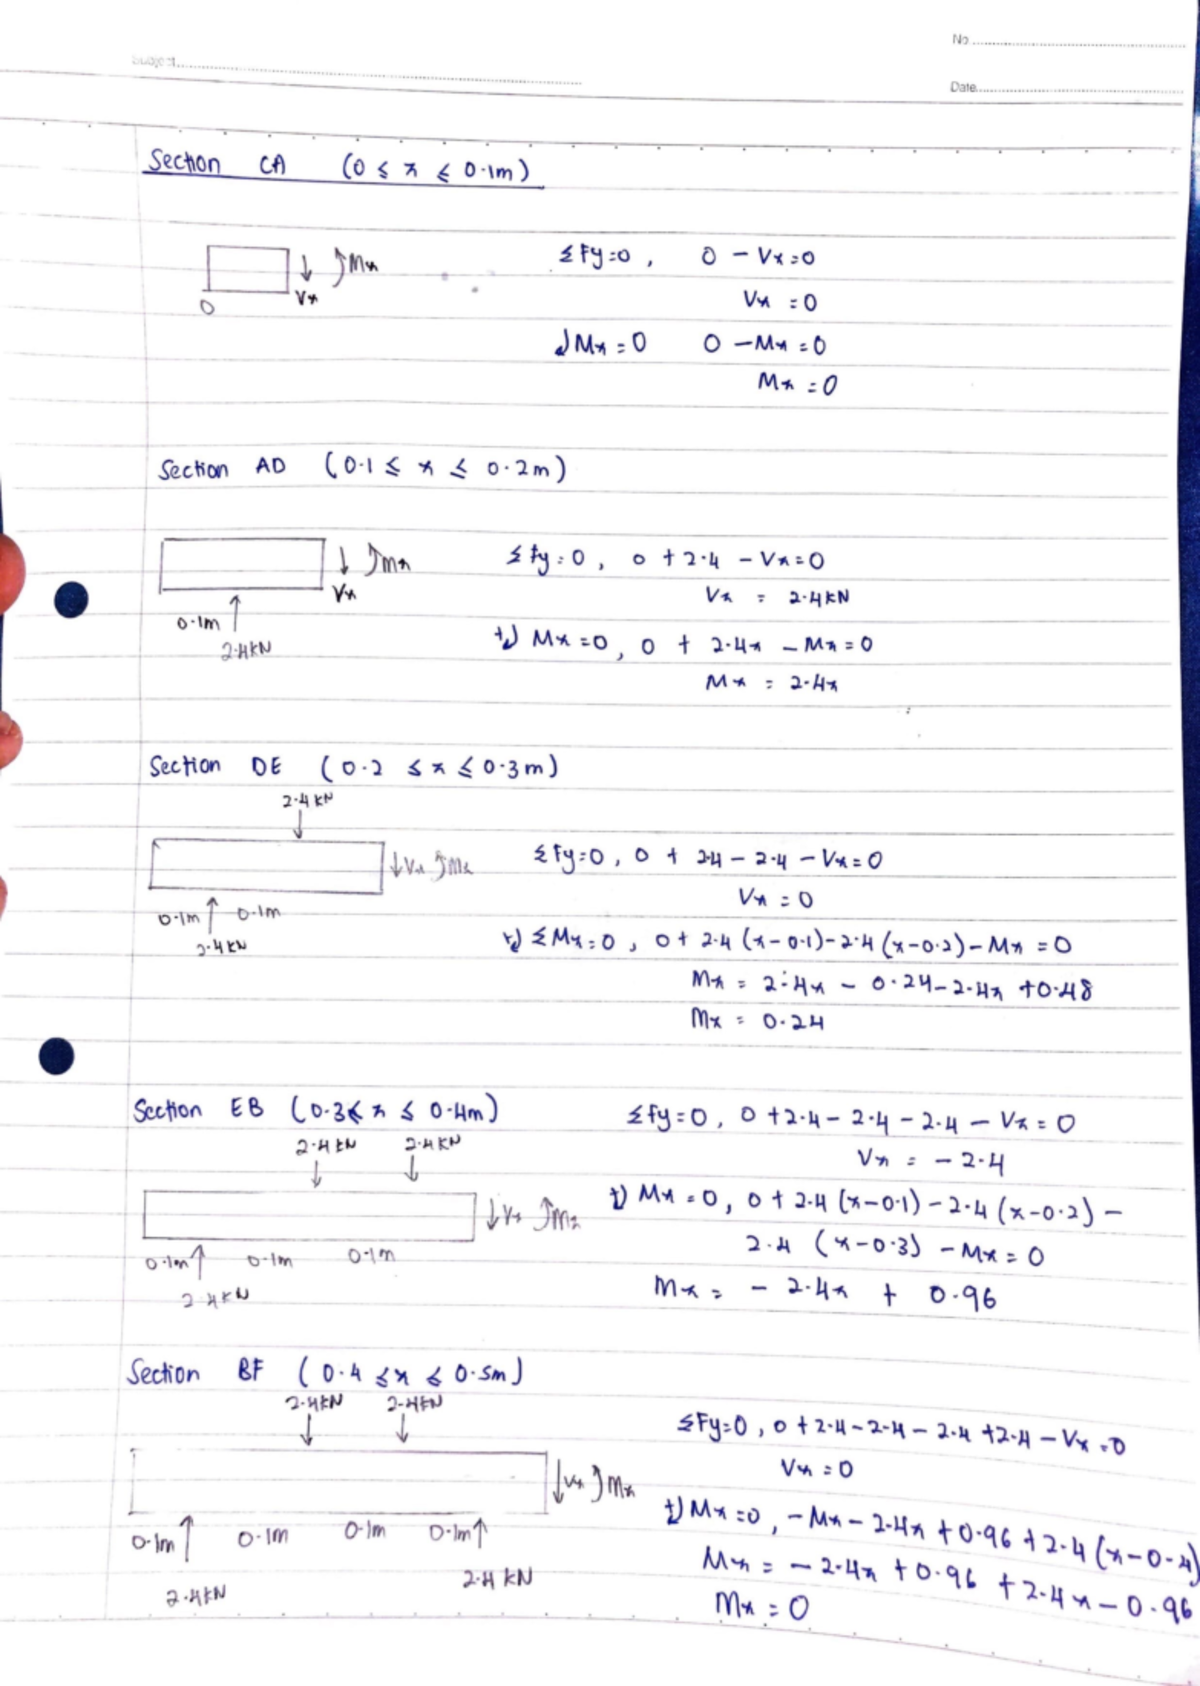 No
Subject
Date
Section CA (0 ≤ x ≤ 0.1m)
ΣFy=0, 0 - Vx=0
Mx
Vx
0
Vx = 0
Mx = 0 0 - Mx = 0
Mx = 0
Section AD (0.1 ≤ x ≤ 0.2m)
ΣFy=0, 0 + 2.4 - Vx=0
Mx
Vx
Vx = 2.4KN
0.1m
2.4KN
+ Mx=0, 0 + 2.4x - Mx = 0
Mx = 2.4x
Section DE (0.2 ≤ x ≤ 0.3m)
2.4KN
Vx Mx
ΣFy=0, 0 + 2.4 - 2.4 - Vx=0
Vx = 0
0.1m 0.1m
2.4KN
+ ΣMx=0, 0+ 2.4(x-0.1)-2.4(x-0.2)-Mx = 0
Mx = 2.4x - 0.24-2.4x +0.48
Mx = 0.24
Section EB (0.3≤ x ≤ 0.4m)
ΣFy=0, 0 +2.4 - 2.4 - 2.4 - Vx = 0
2.4KN 2.4KN
Vx = - 2.4
Vx Mx
+ Mx = 0, 0 + 2.4(x-0.1) - 2.4(x-0.2) -
2.4 (x-0.3) - Mx = 0
0.1m 0.1m 0.1m
2.4KN
Mx = - 2.4x + 0.96
Section BF (0.4 ≤ x ≤ 0.5m)
2.4KN 2.4KN
ΣFy=0, 0 +2.4-2.4 - 2.4 +2.4 - Vx =0
Vx = 0
Vx Mx
+ Mx =0, -Mx - 2.4x +0.96 +2.4(x-0.4)
0.1m 0.1m 0.1m 0.1m
Mx = - 2.4x +0.96 +2.4x - 0.96
2.4KN 2.4KN
Mx = 0